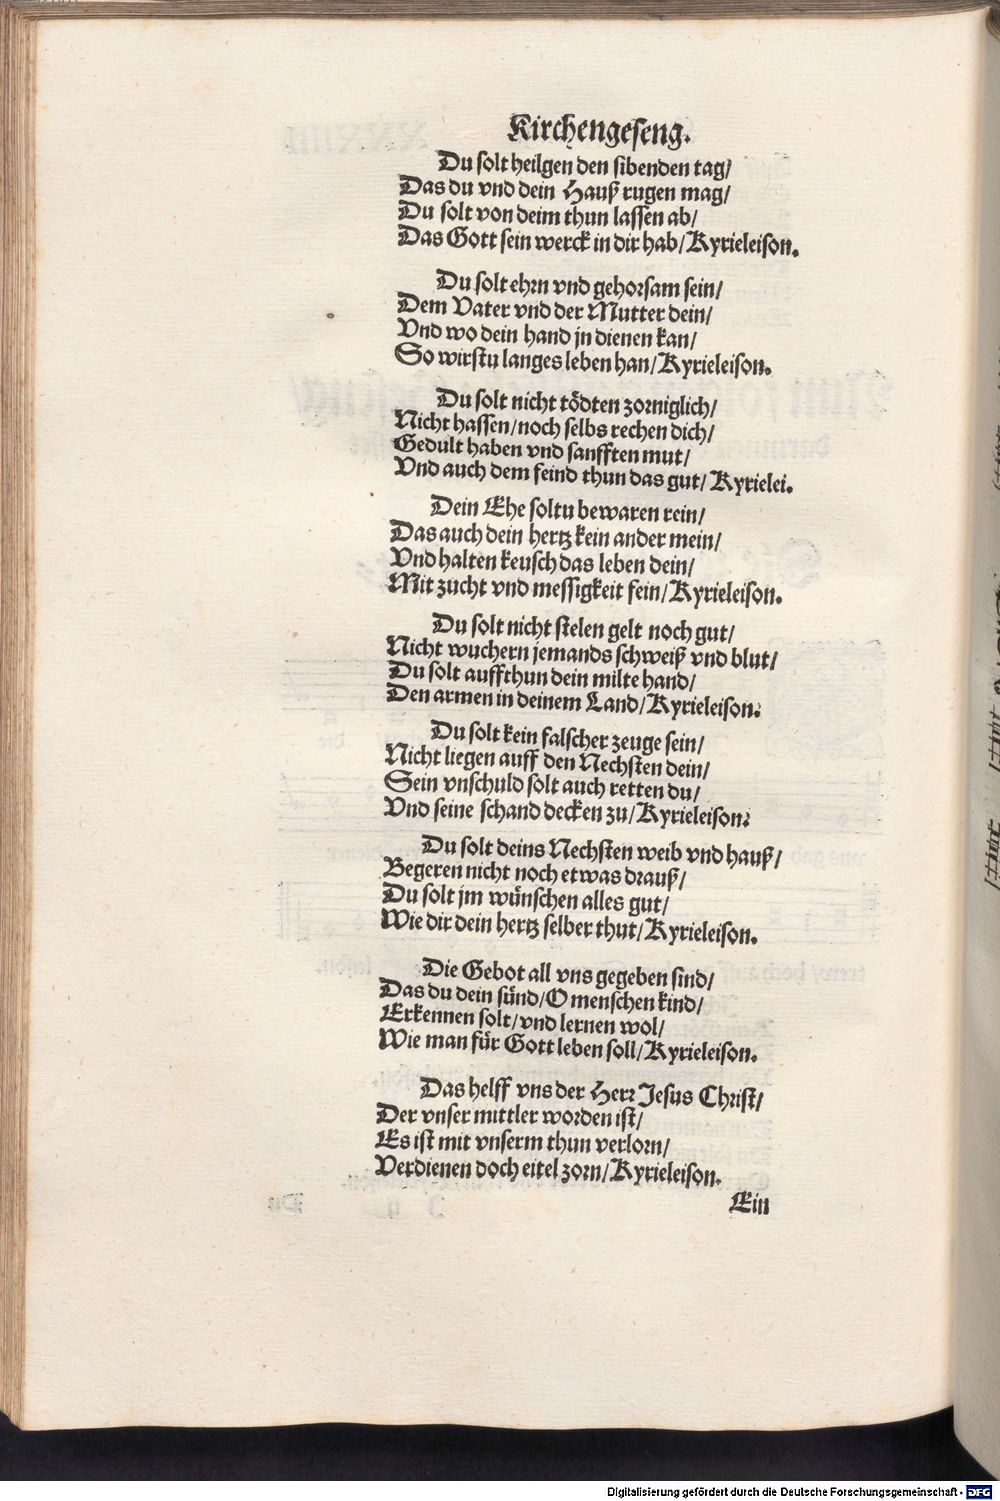 Kirchengeseng.
Du solt heilgen den sibenden tag/
Das du vnd dein Hauß rugen mag/
Du solt von deim thun lassen ab/
Das Gott sein werck in dir hab/Kyrieleison.
Du solt ehrn vnd gehorsam sein/
Dem Vater vnd der Mutter dein/
Vnd wo dein hand jn dienen kan/
So wirstu langes leben han/Kyrieleison.
Du solt nicht tödten zorniglich/
Nicht hassen/noch selbs rechen dich/
Gedult haben vnd sanfften mut/
Vnd auch dem feind thun das gut/ Kyrielei.
Dein Ehe soltu bewaren rein/
Das auch dein hertz kein ander mein/
Vnd halten keusch das leben dein/
Mit zucht vnd messigkeit fein/Kyrieleison.
Du solt nicht stelen gelt noch gut/
Nicht wuchern jemands schweiß vnd blut/
Du solt auffthun dein milte hand/
Den armen in deinem Land/Kyrieleison.
Du solt kein falscher zeuge sein/
Nicht liegen auff den Nechsten dein/
Sein vnschuld solt auch retten du/
Vnd seine schand decken zu/Kyrieleison.
Du solt deins Nechsten weib vnd hauß/
Begeren nicht noch etwas drauß/
Du solt jm wünschen alles gut/
Wie dir dein hertz selber thut/Kyrieleison.
Die Gebot all vns gegeben sind/
Das du dein sünd/O menschen kind/
Erkennen solt/vnd lernen wol/
Wie man für Gott leben soll/Kyrieleison.
Das helff vns der Herr Jesus Christ/
Der vnser mittler worden ist/
Es ist mit vnserm thun verlorn/
Verdienen doch eitel zorn/Kyrieleison.
Ein
Digitalisierung gefördert durch die Deutsche Forschungsgemeinschaft - DFG